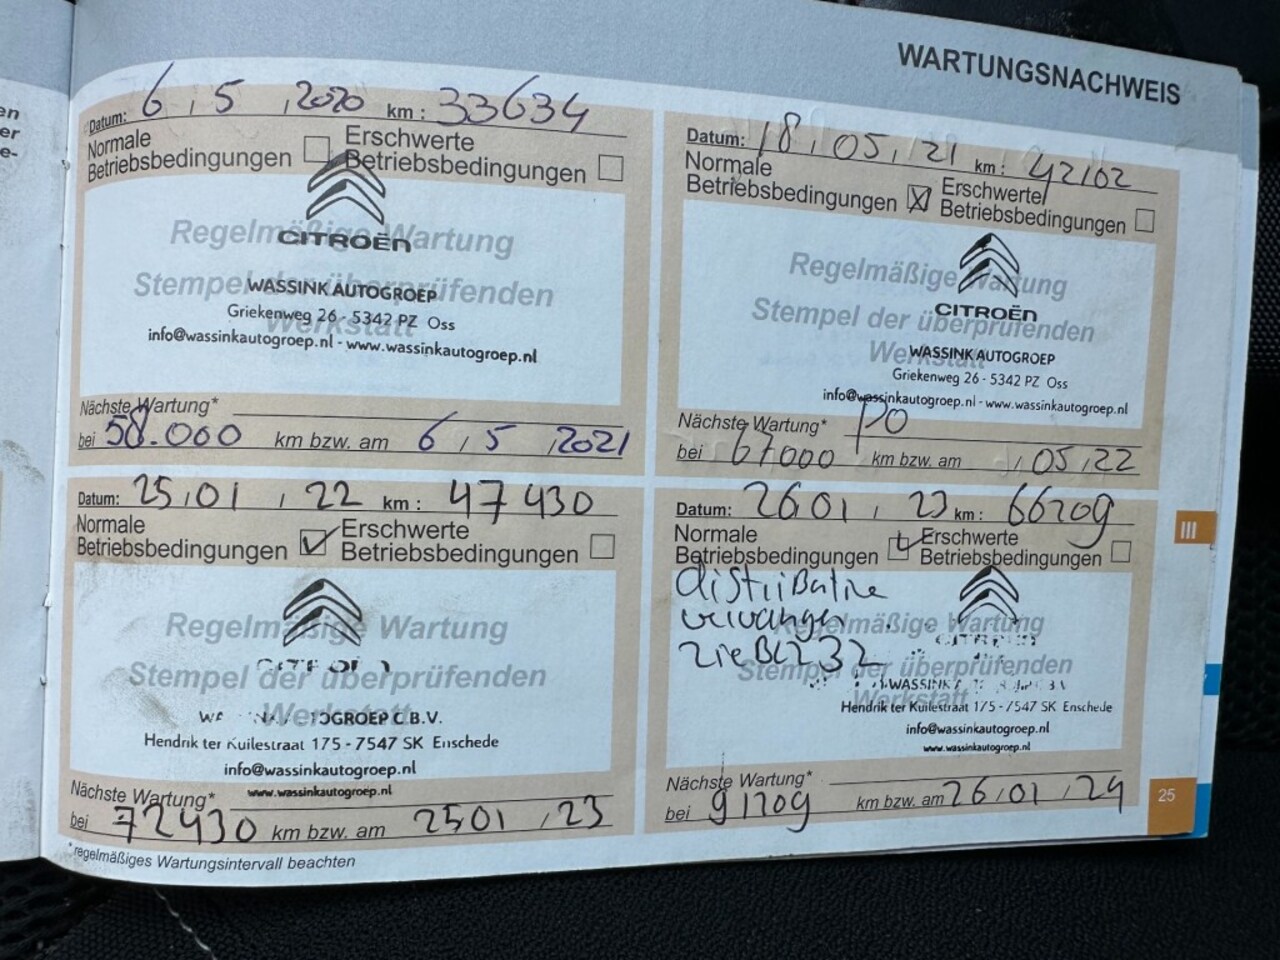 en
er
e-
WARTUNGSNACHWEIS
Datum: 6 , 5 , 2020 km : 33634
Normale Betriebsbedingungen
Erschwerte Betriebsbedingungen
Regelmäßige Wartung
Stempel der überprüfenden
Werkstatt
CITROËN
WASSINK AUTOGROEP
Griekenweg 26 - 5342 PZ Oss
info@wassinkautogroep.nl - www.wassinkautogroep.nl
Nächste Wartung*
bei 58.000 km bzw. am 6 , 5 , 2021
Datum: 18 , 05 , 21 km : 42102
Normale Betriebsbedingungen
Erschwerte Betriebsbedingungen
Regelmäßige Wartung
Stempel der überprüfenden
Werkstatt
CITROËN
WASSINK AUTOGROEP
Griekenweg 26 - 5342 PZ Oss
info@wassinkautogroep.nl - www.wassinkautogroep.nl
Nächste Wartung* PO
bei 67000 km bzw. am , 05 , 22
Datum: 25 , 01 , 22 km : 47430
Normale Betriebsbedingungen
Erschwerte Betriebsbedingungen
Regelmäßige Wartung
Stempel der überprüfenden
Werkstatt
TOGROEP C B.V.
Hendrik ter Kuilestraat 175 - 7547 SK Enschede
info@wassinkautogroep.nl
www.wassinkautogroep.nl
Nächste Wartung*
bei 72430 km bzw. am 25 01 , 23
Datum: 26 01 , 23 km : 66209
Normale Betriebsbedingungen
Erschwerte Betriebsbedingungen
vervangen
Regelmäßige Wartung
Stempel der überprüfenden
Werkstatt
WASSINK
Hendrik ter Kuilestraat 175 - 7547 SK Enschede
info@wassinkautogroep.nl
www.wassinkautogroep.nl
Nächste Wartung*
bei 91209 km bzw. am 26 , 01 , 24
*regelmäßiges Wartungsintervall beachten
III
25